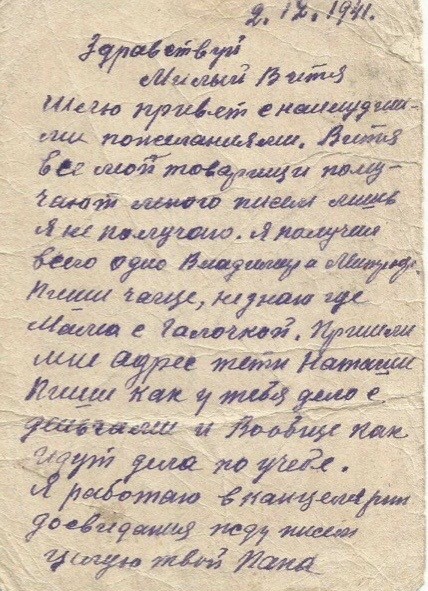 2.12.1941.
Здравствуй
Милый Витя
Шлю привет с наилудши-
ми пожеланиями. Витя
все мои товарищи полу-
чают много писем лишь
я не получаю. Я получил
всего одно Владимира
Пиши чаще, незнаю где
Мама с Галочкой. Пришли
мне адрес тети Наташи
Пиши как у тебя дело с
деньгами и вообще как
идут дела по учебе.
Я работаю в канцелярии
досвидания жду писем
целую твой Папа